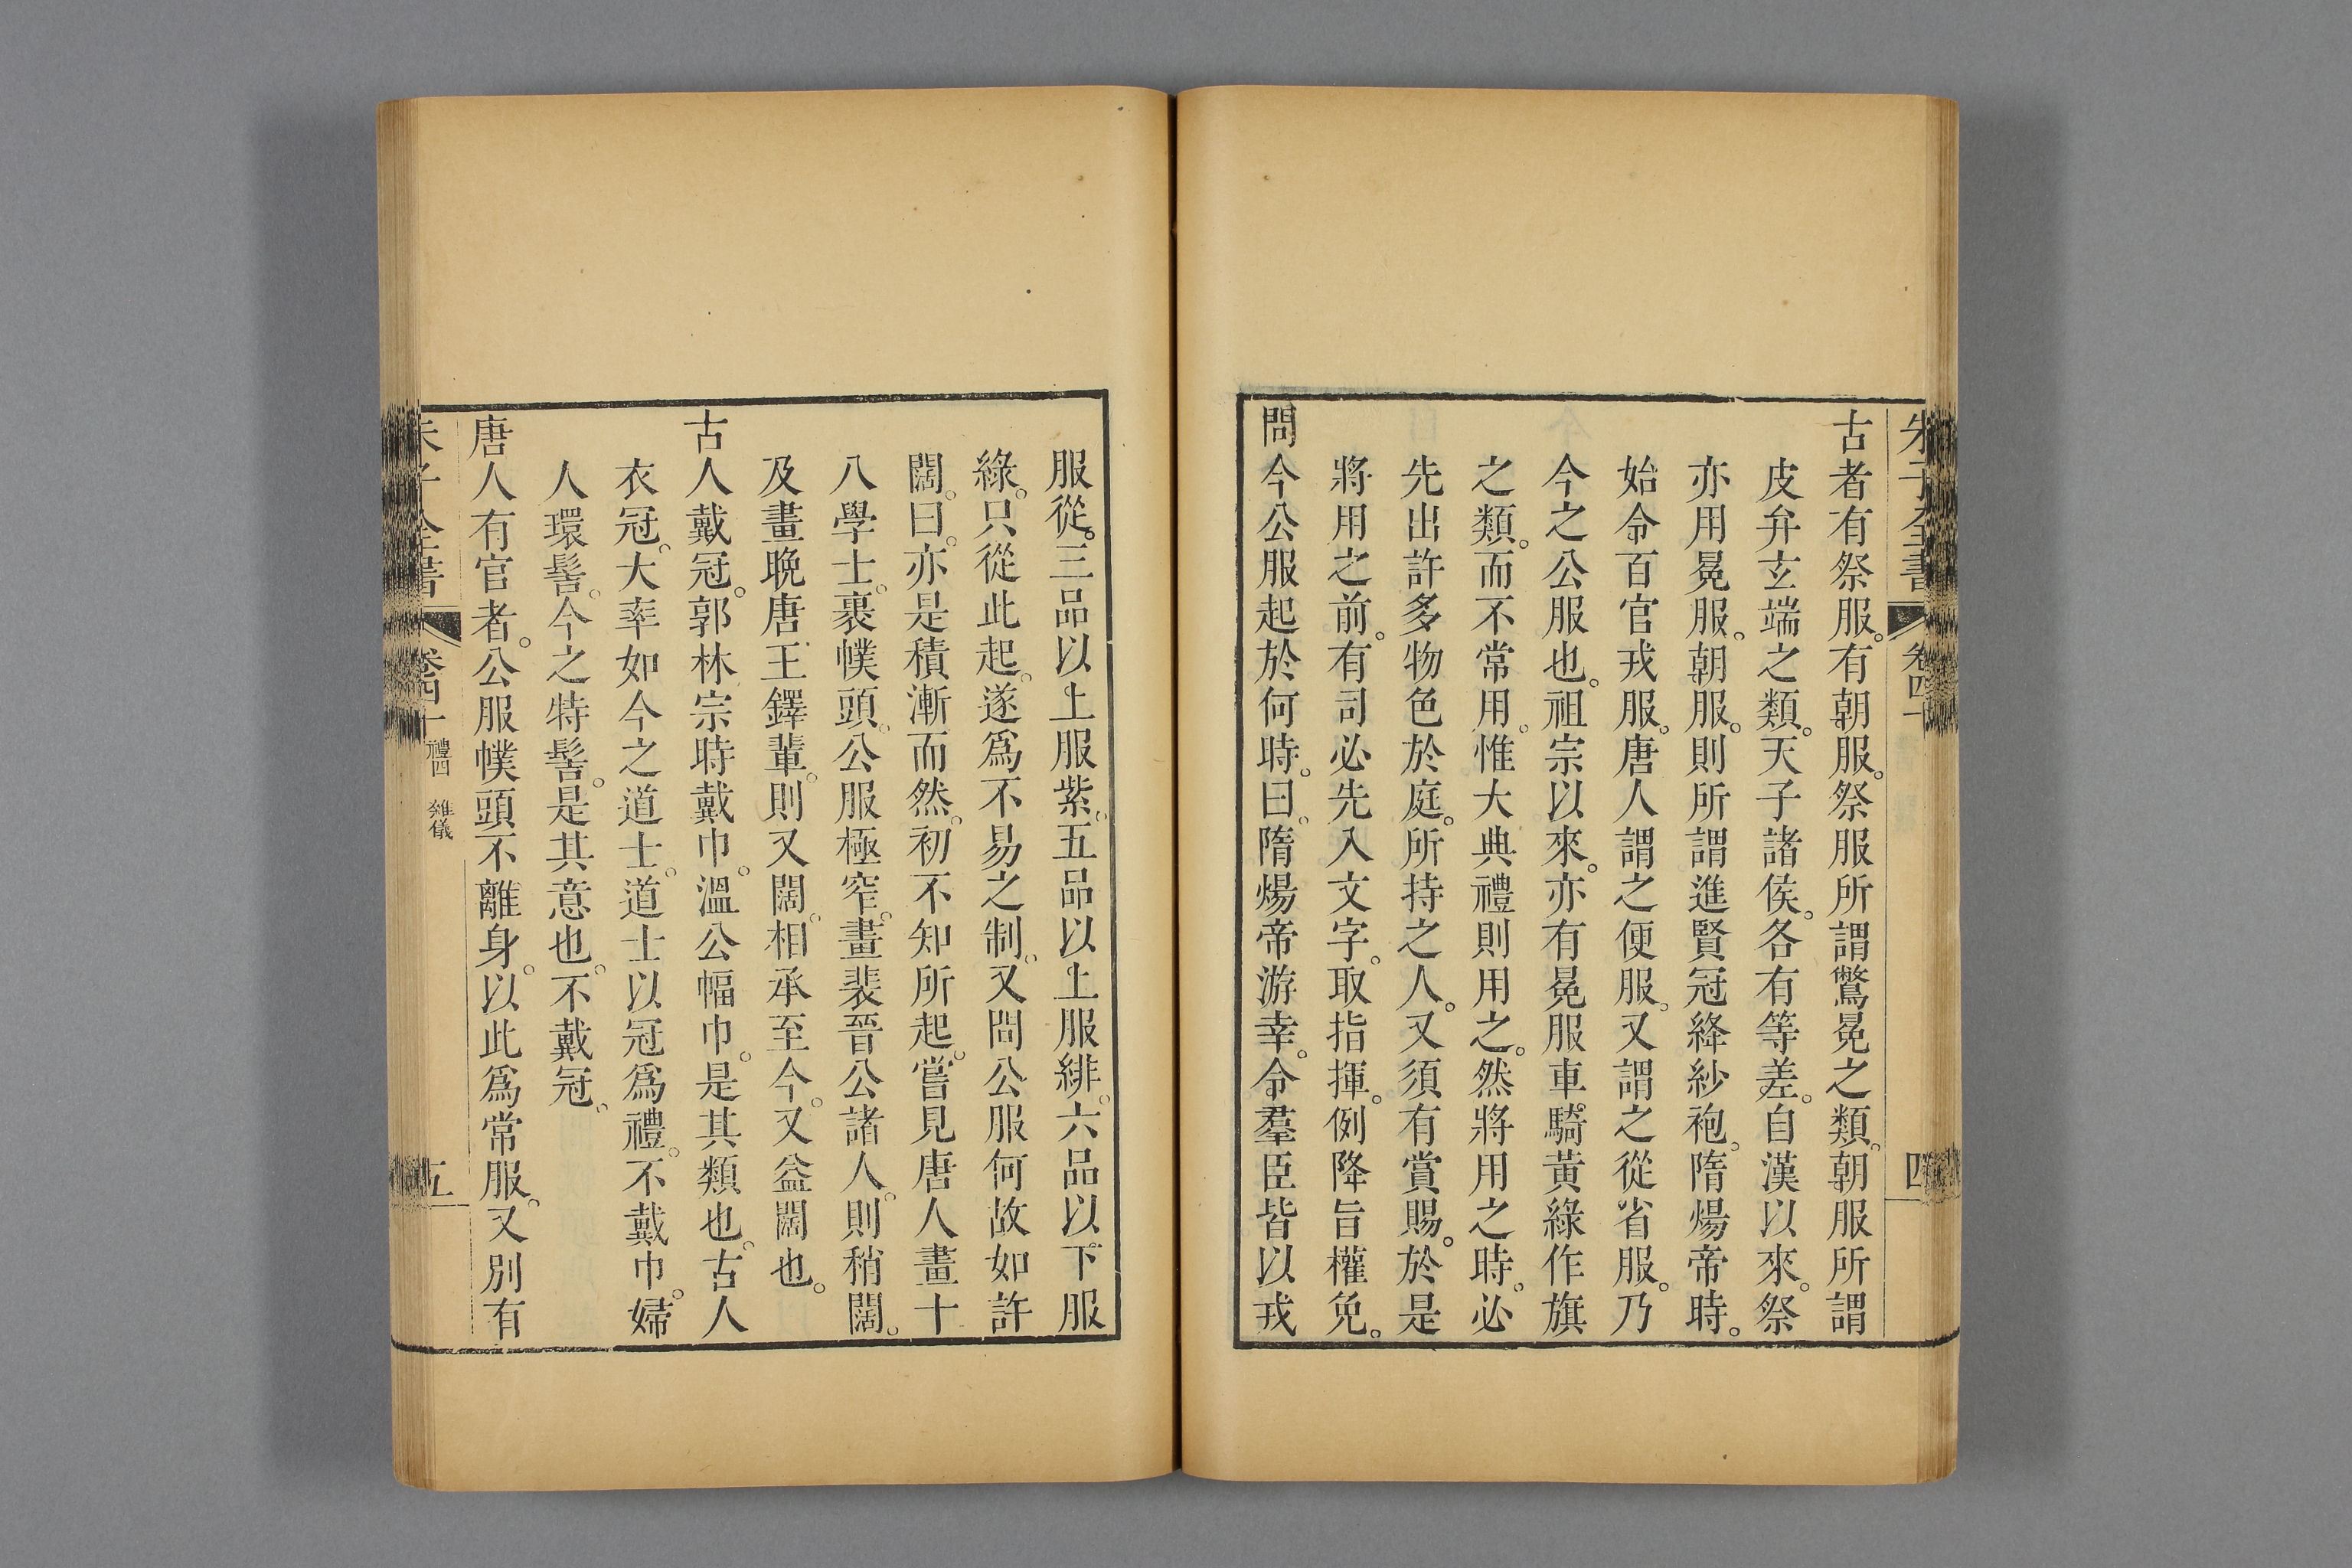 朱子全書 卷四十 四
古者有祭服。有朝服。祭服所謂鷩冕之類。朝服所謂
皮弁玄端之類。天子諸侯。各有等差。自漢以來。祭
亦用冕服。朝服。則所謂進賢冠絳紗袍。隋煬帝時。
始令百官戎服。唐人謂之便服。又謂之從省服。乃
今之公服也。祖宗以來。亦有冕服車騎黃綠作旗
之類。而不常用。惟大典禮則用之。然將用之時。必
先出許多物色於庭。所持之人。又須有賞賜。於是
將用之前。有司必先入文字。取指揮。例降旨權免。
問今公服起於何時。曰。隋煬帝游幸。令羣臣皆以戎
服從。三品以上服紫。五品以上服緋。六品以下服
綠。只從此起。遂爲不易之制。又問公服何故如許
闊。曰。亦是積漸而然。初不知所起。嘗見唐人畫十
八學士。裹幞頭。公服極窄。畫裴晉公諸人。則稍闊。
及畫晚唐王鐸輩。則又闊。相承至今。又益闊也。
古人戴冠。郭林宗時戴巾。溫公幅巾。是其類也。古人
衣冠。大率如今之道士。道士以冠爲禮。不戴巾。婦
人環髻。今之特髻。是其意也。不戴冠。
唐人有官者。公服幞頭不離身。以此爲常服。又別有
朱子全書 卷四十 禮四 雜儀 五